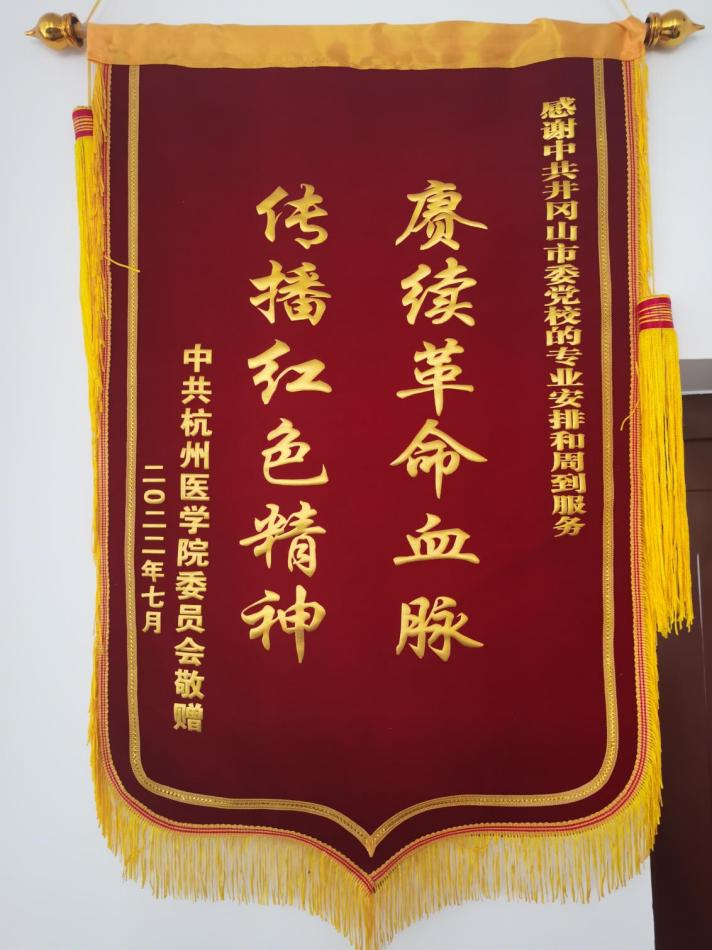 感谢中共井冈山市委党校的专业安排和周到服务
赓续革命血脉
传播红色精神
中共杭州医学院委员会敬赠
二〇二二年七月